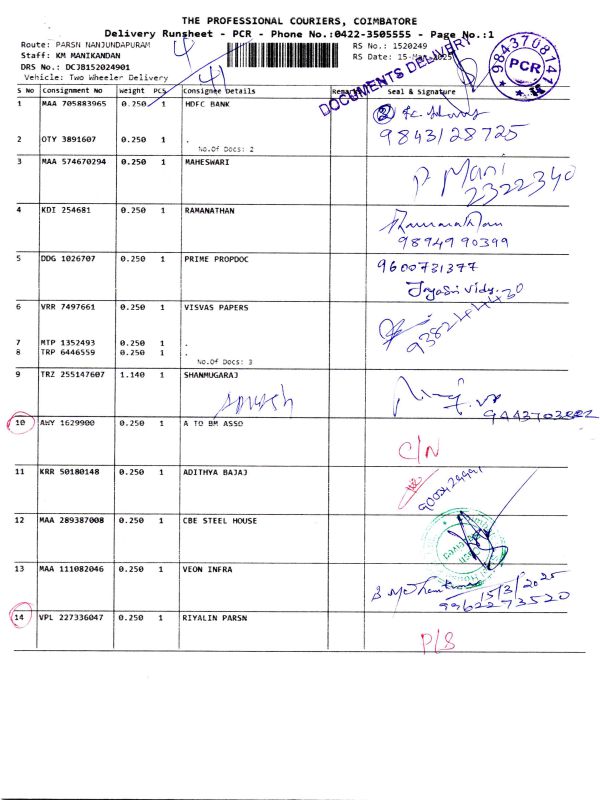 THE PROFESSIONAL COURIERS, COIMBATORE
Delivery Runsheet - PCR - Phone No.:0422-3505555 - Page No.:1
Route: PARSN NANJUNDAPURAM
RS No.: 1520249
Staff: KM MANIKANDAN
RS Date: 15-Mar-2025
DRS No.: DCJB152024901
Vehicle: Two Wheeler Delivery
4
41
DOCUMENTS DELIVERY
9843708141
PCR
S No Consignment No Weight PCS Consignee Details Remarks Seal & Signature
1 MAA 705883965 0.250 1 HDFC BANK
2
9843128725
2 OTY 3891607 0.250 1 .
No.Of Docs: 2
3 MAA 574670294 0.250 1 MAHESWARI
P Mani
2322340
4 KDI 254681 0.250 1 RAMANATHAN
Ramanathan
9894990399
5 DDG 1026707 0.250 1 PRIME PROPDOC
9600731377
Jayasri Vidy.
6 VRR 7497661 0.250 1 VISVAS PAPERS
9382444430
7 MTP 1352493 0.250 1 .
8 TRP 6446559 0.250 1 .
No.Of Docs: 3
9 TRZ 255147607 1.140 1 SHANMUGARAJ
10 AWY 1629900 0.250 1 A TO BM ASSO
C/N
11 KRR 50180148 0.250 1 ADITHYA BAJAJ
12 MAA 289387008 0.250 1 CBE STEEL HOUSE
13 MAA 111082046 0.250 1 VEON INFRA
15/3/2025
9962273520
14 VPL 227336047 0.250 1 RIYALIN PARSN
P/S